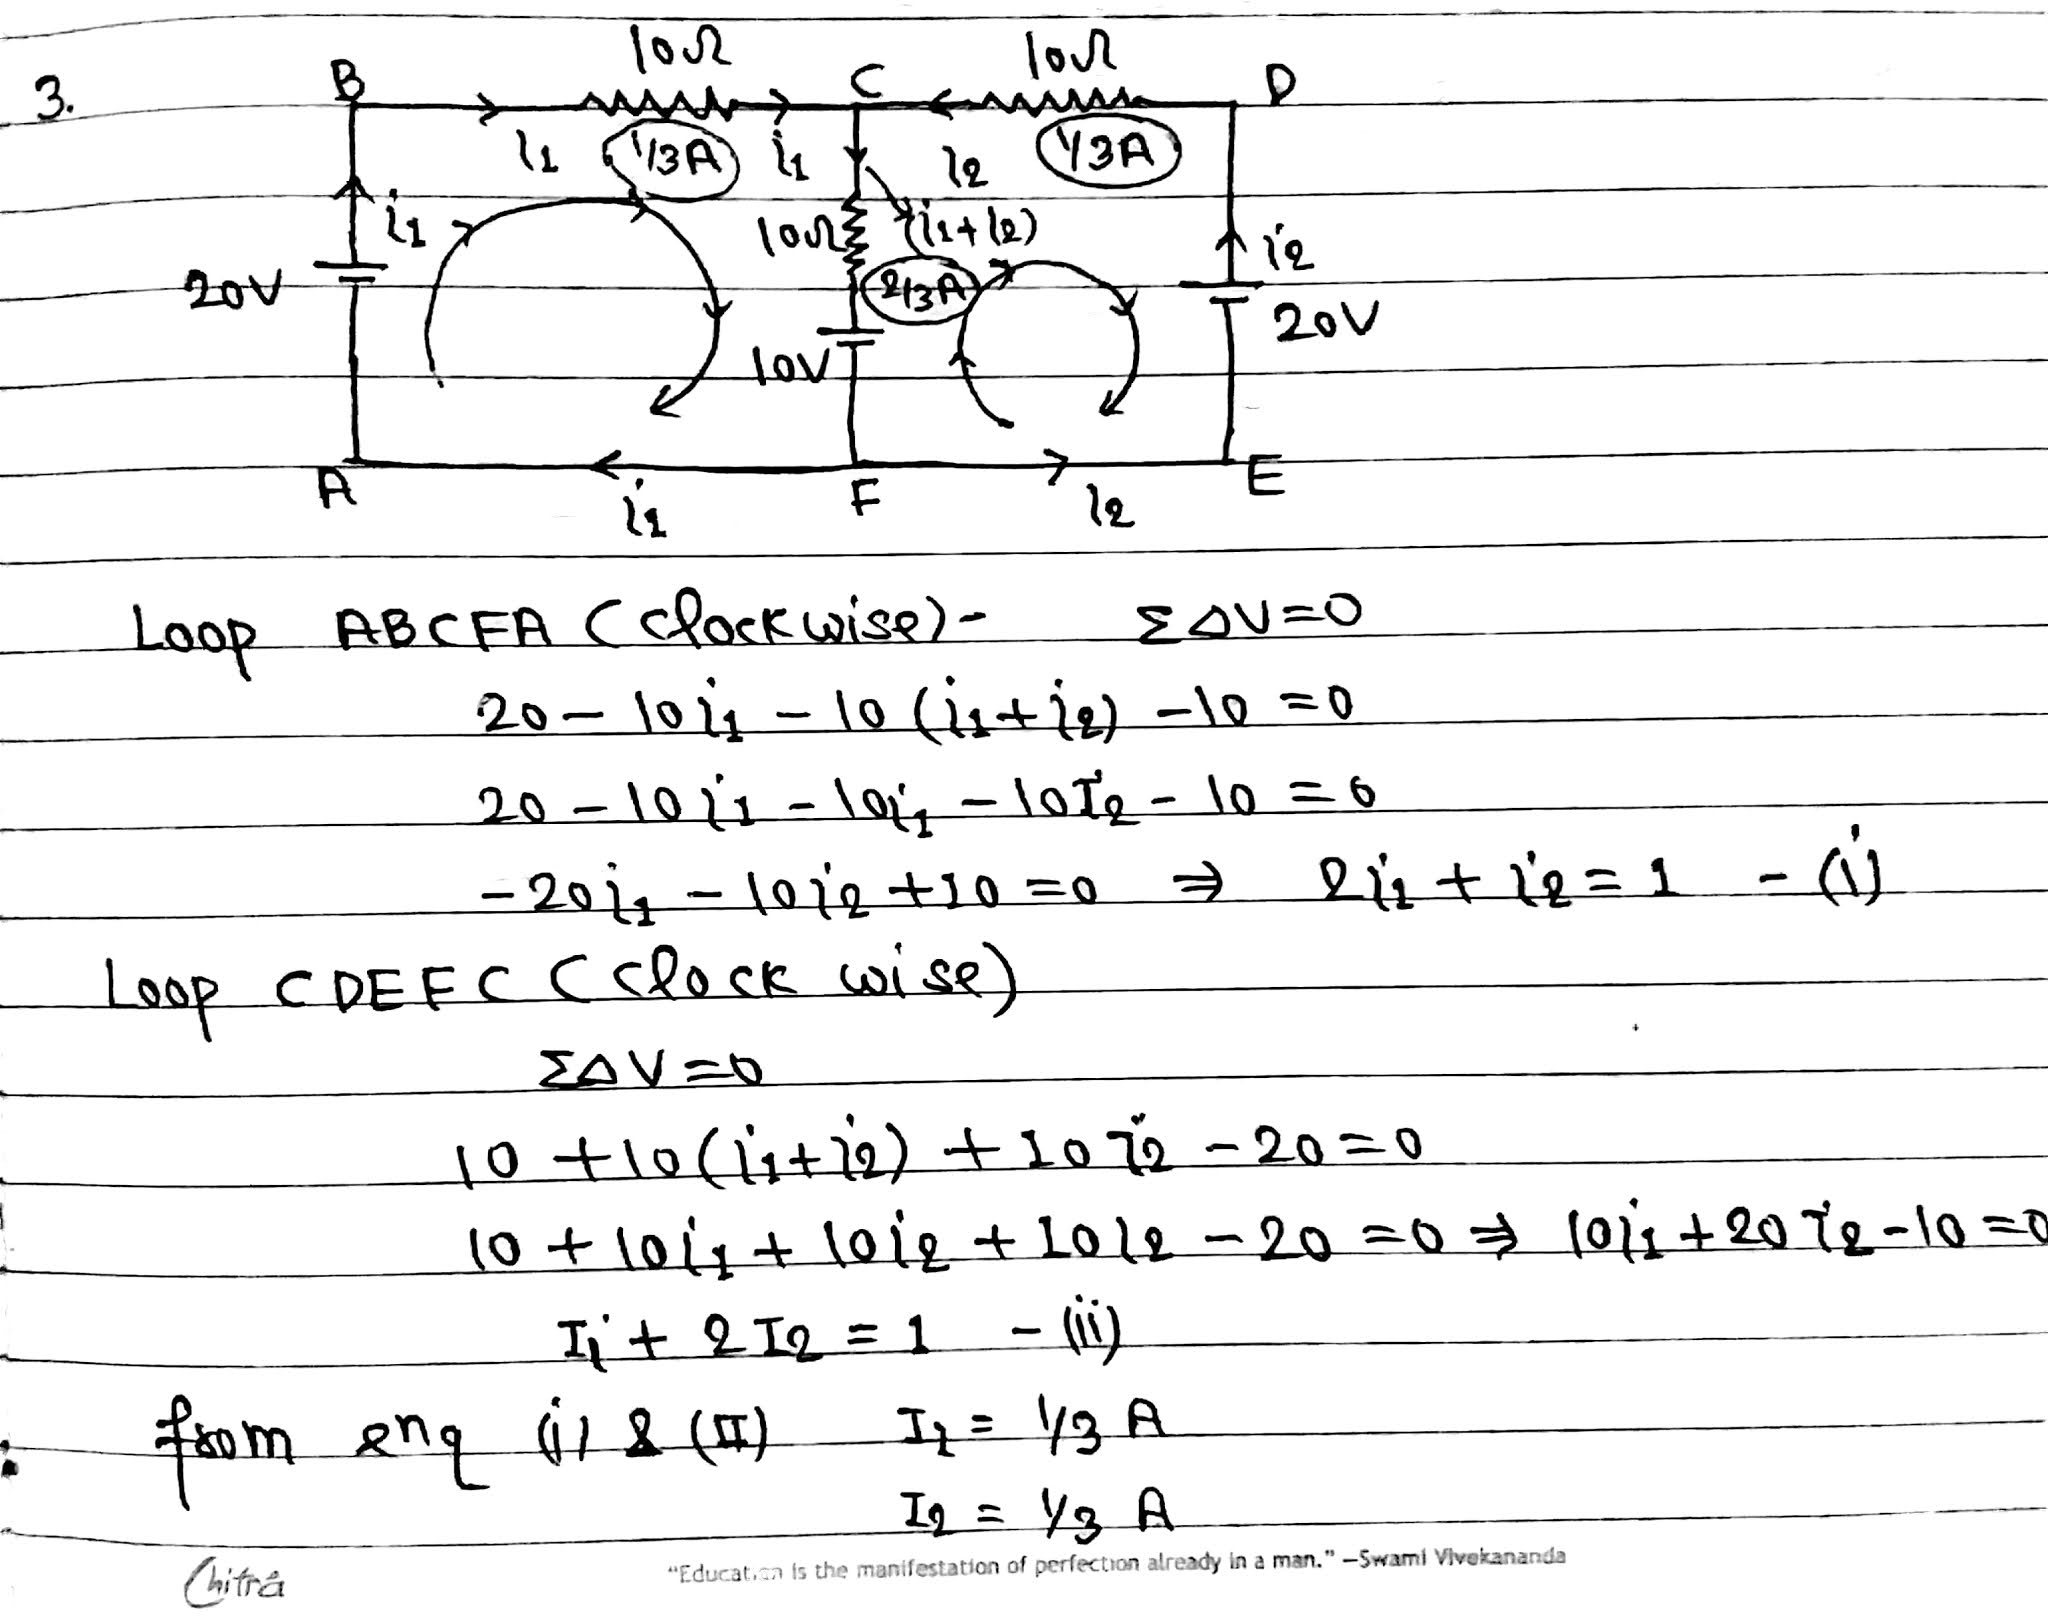 3.
10Ω 10Ω
B C D
i1 1/3A i1 i2 1/3A
i1 10Ω (i1+i2) i2
20V 2/3A 20V
10V
A F E
i1 i2
Loop ABCFA (Clockwise)- ΣΔV=0
20 – 10i1 – 10 (i1+i2) –10 =0
20 – 10i1 – 10i1 – 10I2 – 10 = 0
– 20i1 – 10i2 +10 =0 ⇒ 2i1 + i2 = 1 – (i)
Loop CDEFC (Clock wise)
ΣΔV=0
10 +10(i1+i2) + 10i2 –20=0
10 + 10i1 + 10i2 + 10i2 – 20 =0 ⇒ 10i1 +20i2 –10 =0
I1 + 2I2 = 1 – (ii)
from enq (i) & (II) I1 = 1/3 A
I2 = 1/3 A
Chitra
"Education is the manifestation of perfection already in a man." —Swami Vivekananda